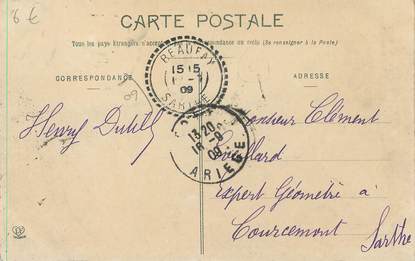 8 €
CARTE POSTALE
Tous les pays étrangers n'accept
pondance au recto (Se renseigner à la Poste)
CORRESPONDANCE
ADRESSE
BEAUFAY
15 15
09
SARTHE
09
13 20
18 - 9
09
ARIEGE
Henry
Monsieur Clément
Expert Géomètre à
Courcemont
Sarthe